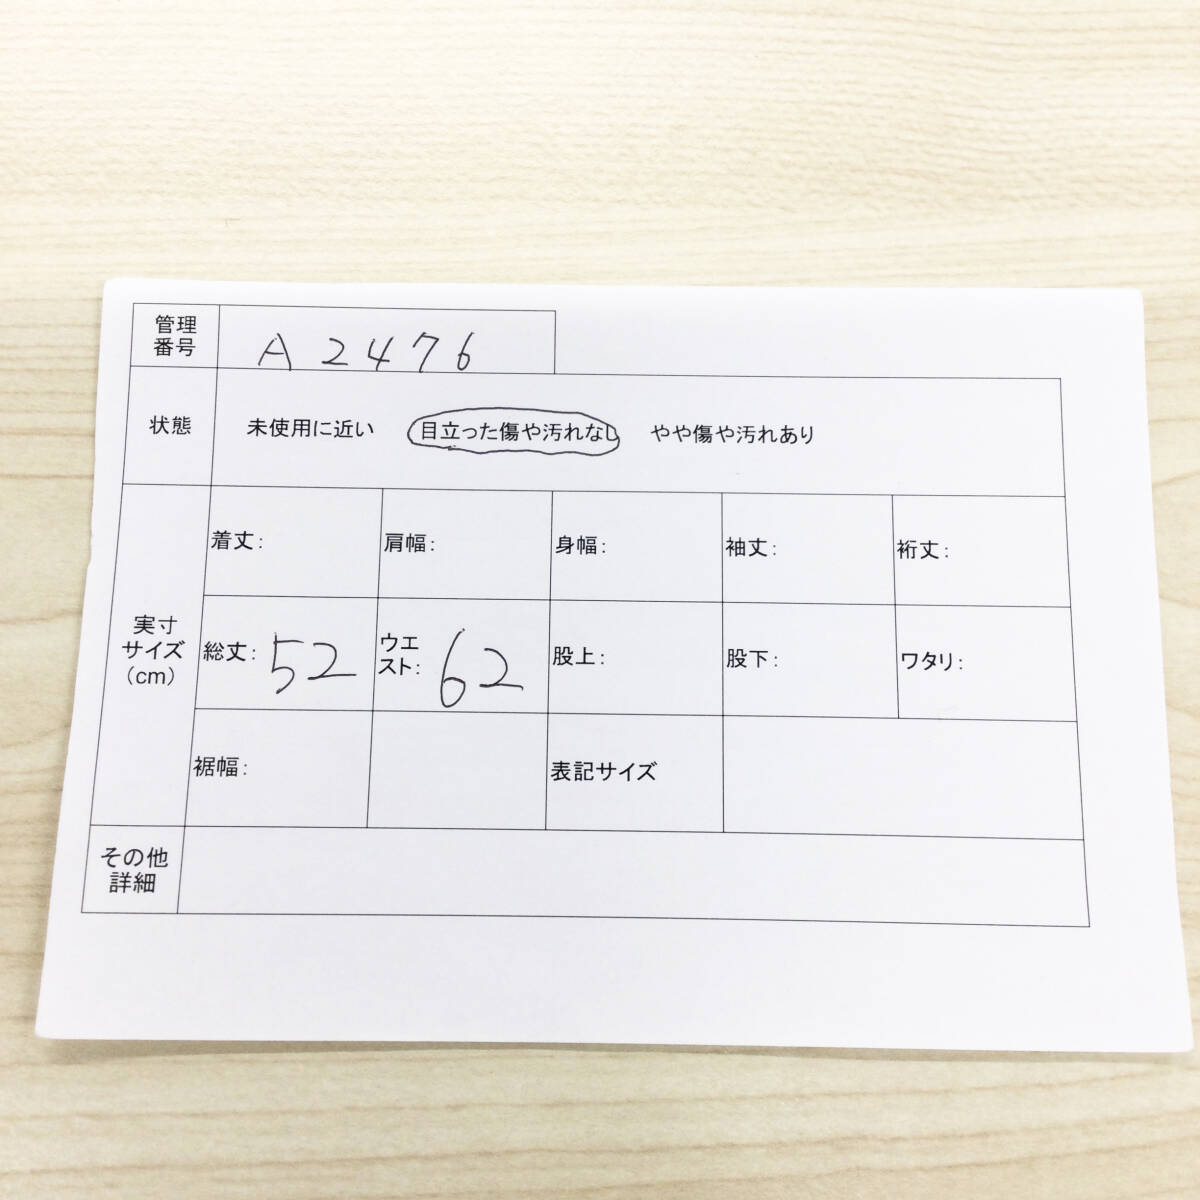 管理
番号
A2476
状態
未使用に近い 目立った傷や汚れなし やや傷や汚れあり
実寸
サイズ
（cm）
着丈： 肩幅： 身幅： 袖丈： 裄丈：
総丈： 52 ウエ
スト： 62 股上： 股下： ワタリ：
裾幅： 表記サイズ
その他
詳細